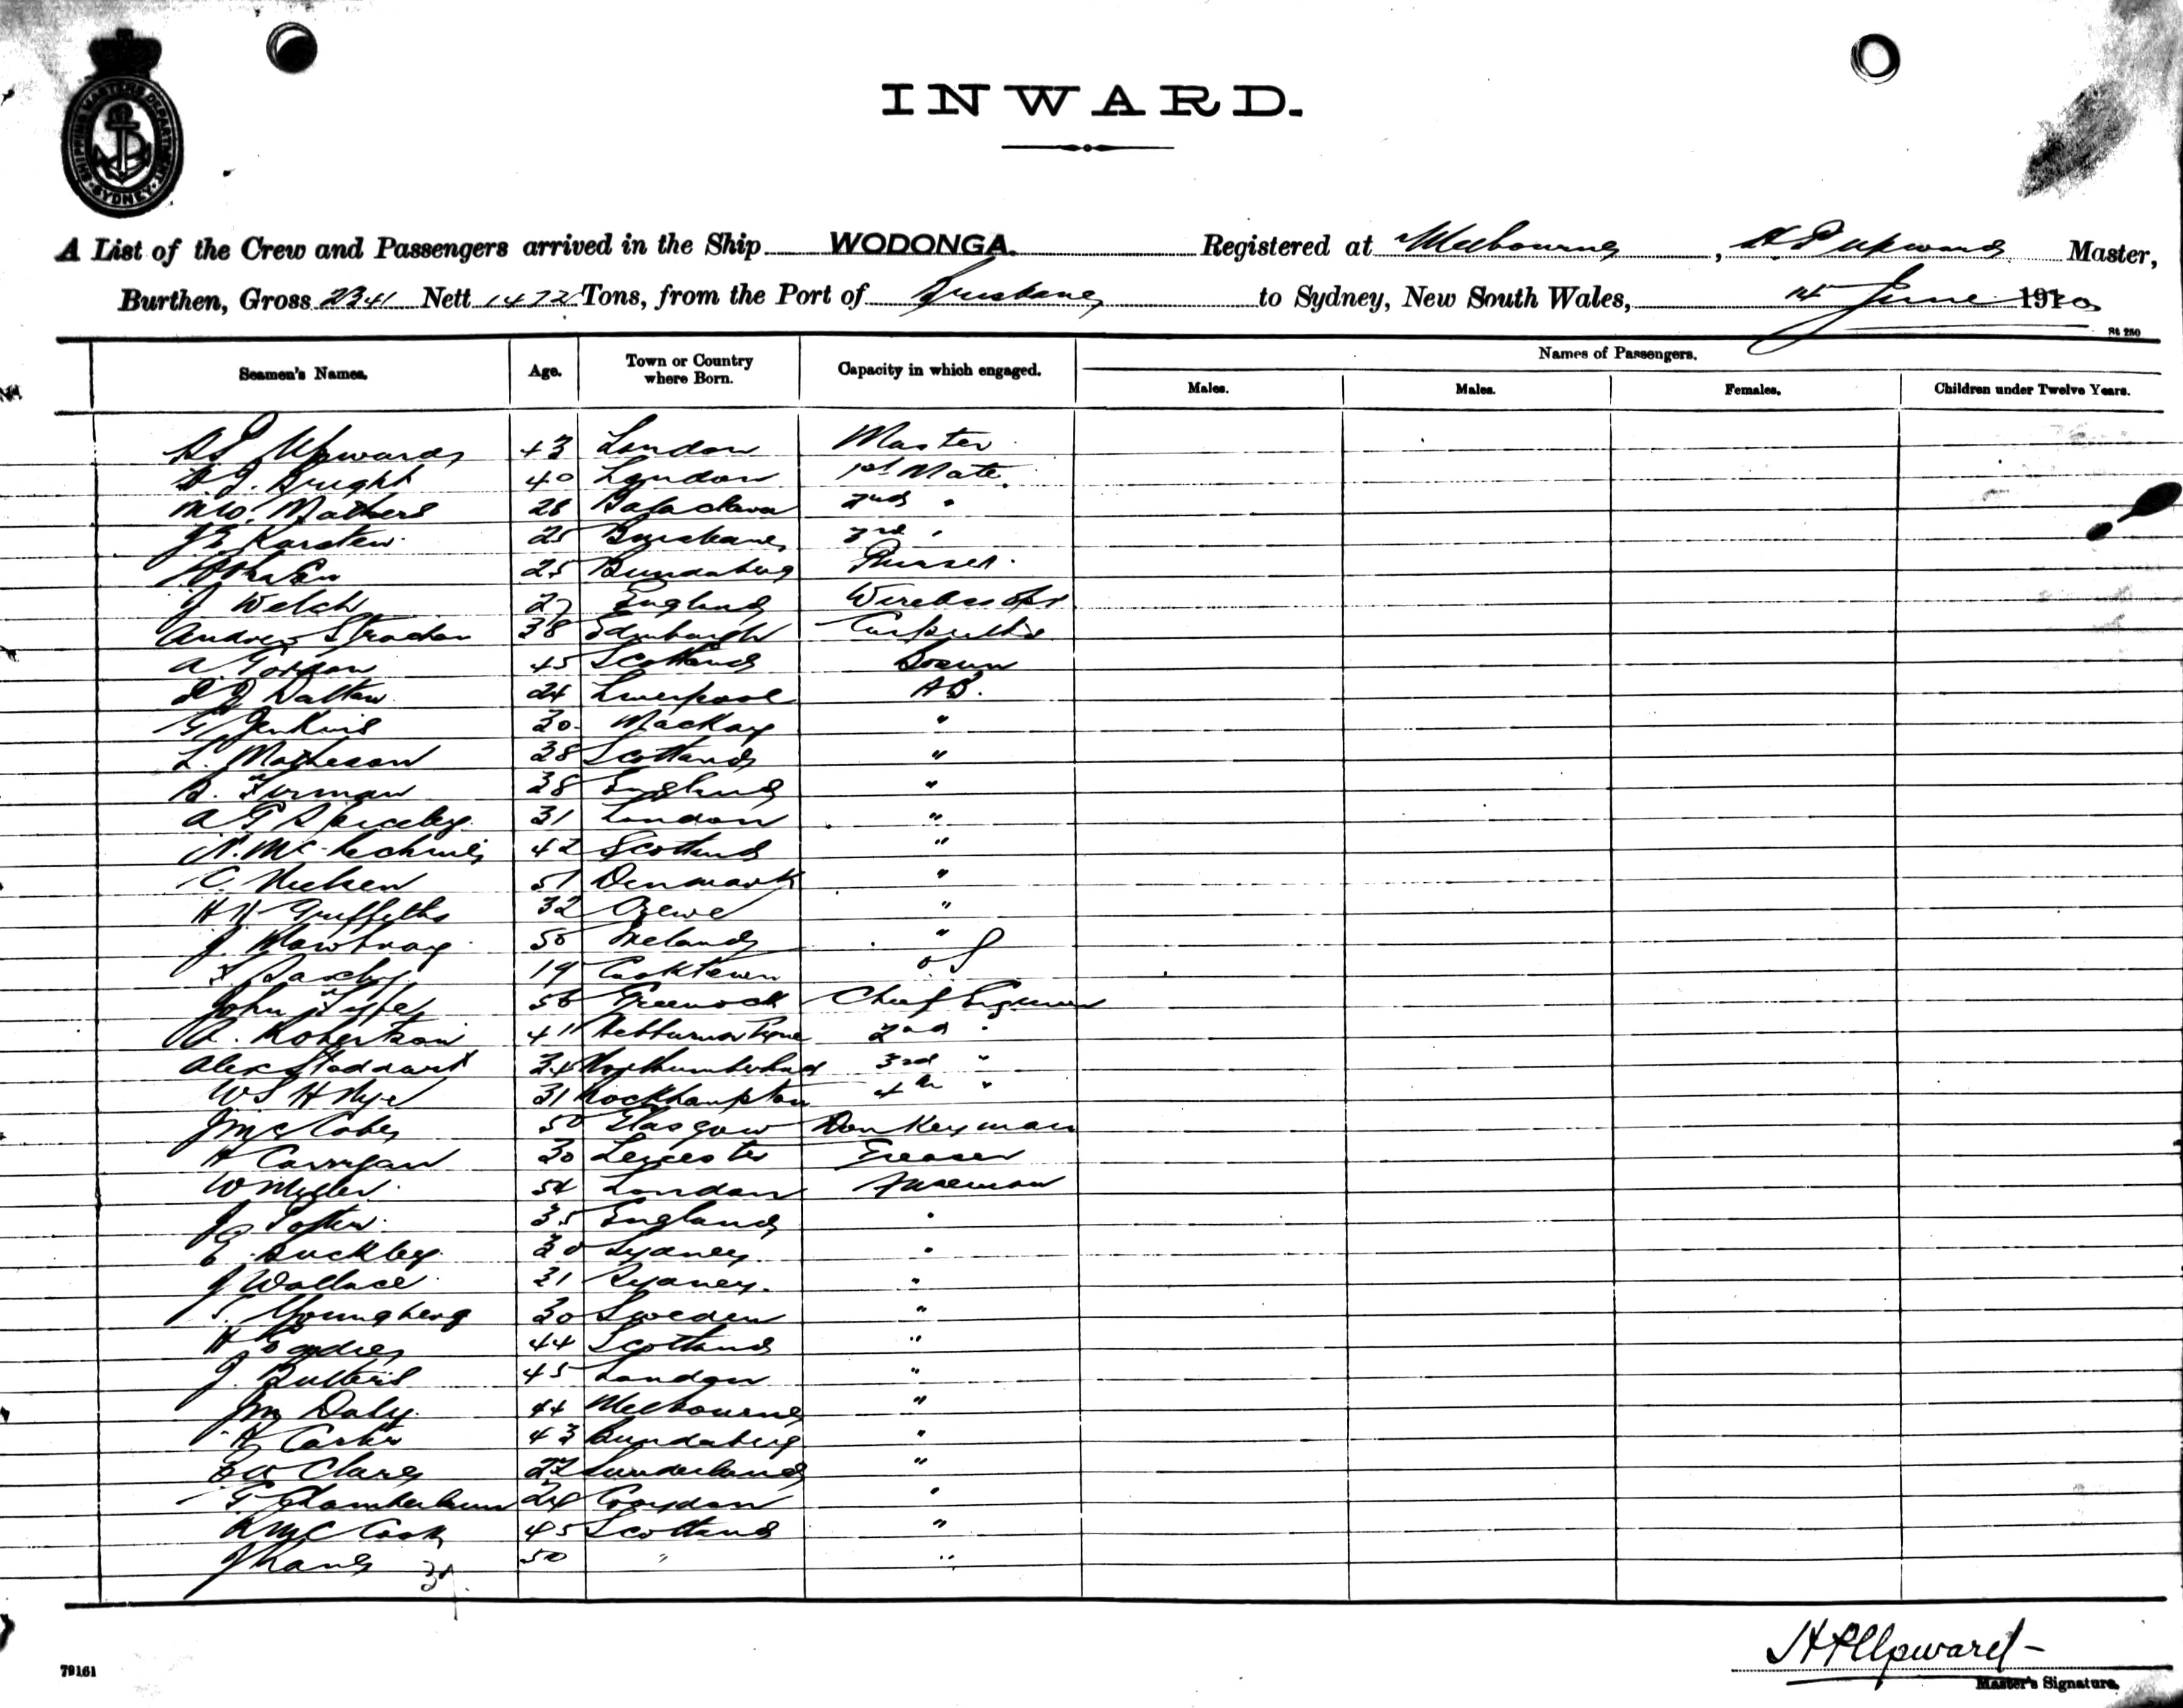 SHIPPING MASTERS DEPARTMENT SYDNEY
INWARD.
A List of the Crew and Passengers arrived in the Ship WODONGA. Registered at Melbourne, H. P. Upward Master,
Burthen, Gross 2341 Nett 1472 Tons, from the Port of Brisbane to Sydney, New South Wales, 14 June 1920
St 250
Seamen's Names. Age. Town or Country where Born. Capacity in which engaged. Names of Passengers.
Males. Males. Females. Children under Twelve Years.
Upward 43 London Master
Bright 40 London 1st Mate
M W. Mathers 26 Balaclava 2nd "
J E Karsten 25 Brisbane 3rd "
25 Bundaberg Purser
J Welch 27 England Wireless Opr
Andrew Strachan 38 Edinburgh Carpenter
A. Gordon 45 Scotland Bosun
Dalton 24 Liverpool AB.
G Jenkins 30 Mackay "
L. Matheson 28 Scotland "
B. Furman 38 England "
A G 31 London "
N. McKechnie 42 Scotland "
C. Nielsen 51 Denmark "
H W Griffiths 32 Crewe "
J. Mowbray 50 Ireland "
Saxby 19 Cooktown OS
John 56 Greenock Chief Engineer
A. Robertson 41 Hebburn on Tyne 2nd "
Alex Stoddart 34 Northumberland 3rd "
W S H Nye 31 Rockhampton 4th "
J McCabe 50 Glasgow Donkeyman
H Corrigan 30 Leicester Greaser
W Miller 54 London Fireman
J. Potter 35 England "
E. Buckley 30 Sydney "
J Wallace 31 Sydney "
Youngberg 30 Sweden "
H 44 Scotland "
J. Butters 45 London "
Jm Daly 44 Melbourne "
H Carter 43 Bundaberg "
Clare 27 Sunderland "
G Chamberlain 24 Croydon "
R McCook 45 Scotland "
J Kane 50 " "
H P Upward
79161
Master's Signature.